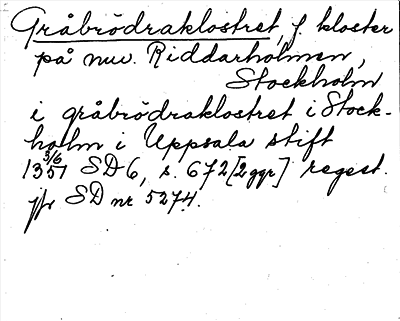 Gråbrödraklostret, f. kloster
på nuv. Riddarholmen,
Stockholm
i gråbrödraklostret i Stock-
holm i Uppsala stift
13 3/6 51 SD 6, s. 672 [2 ggr] regest.
jfr SD nr 5274.